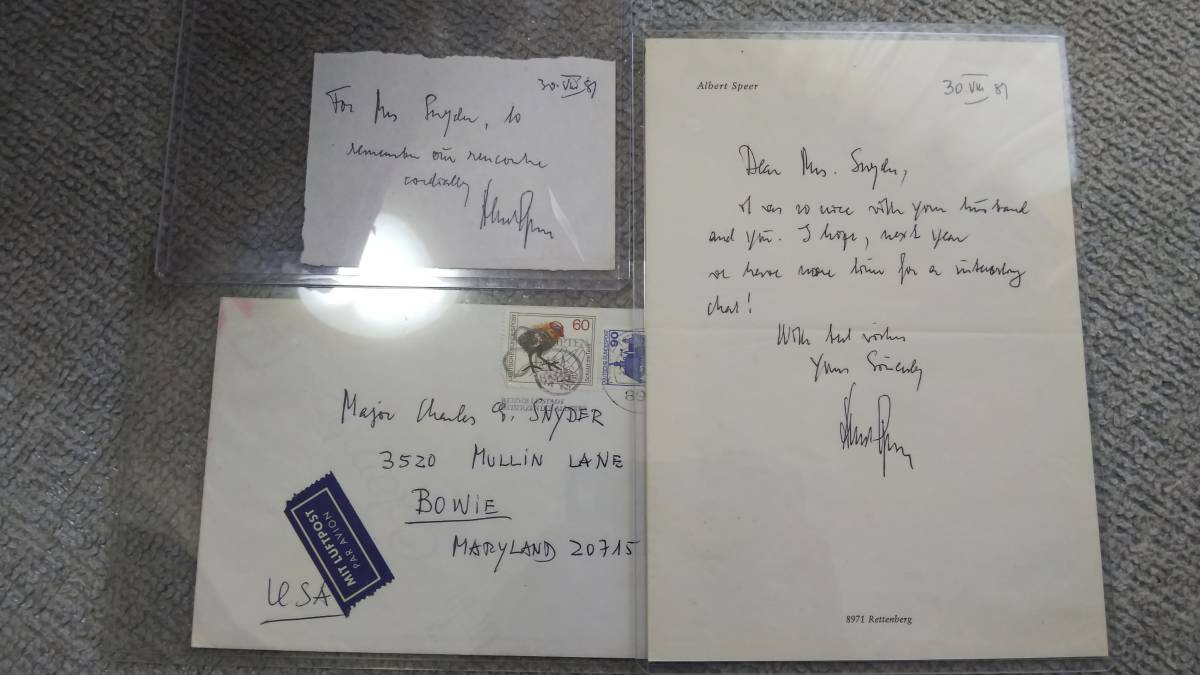 30. VIII 81
For Mrs Snyder, to
remember our rencontre
cordially
Albert Speer
Major Charles G. SNYDER
3520 MULLIN LANE
BOWIE
MARYLAND 20715
USA
MIT LUFTPOST
PAR AVION
60
DEUTSCHE BUNDESPOST
90
DEUTSCHE BUNDESPOST
89
Albert Speer
30. VIII 81
Dear Mrs. Snyder,
it was so nice with your husband
and you. I hope, next year
we have more time for a interesting
chat!
With best wishes
Yours Sincerely
Albert Speer
8971 Rettenberg